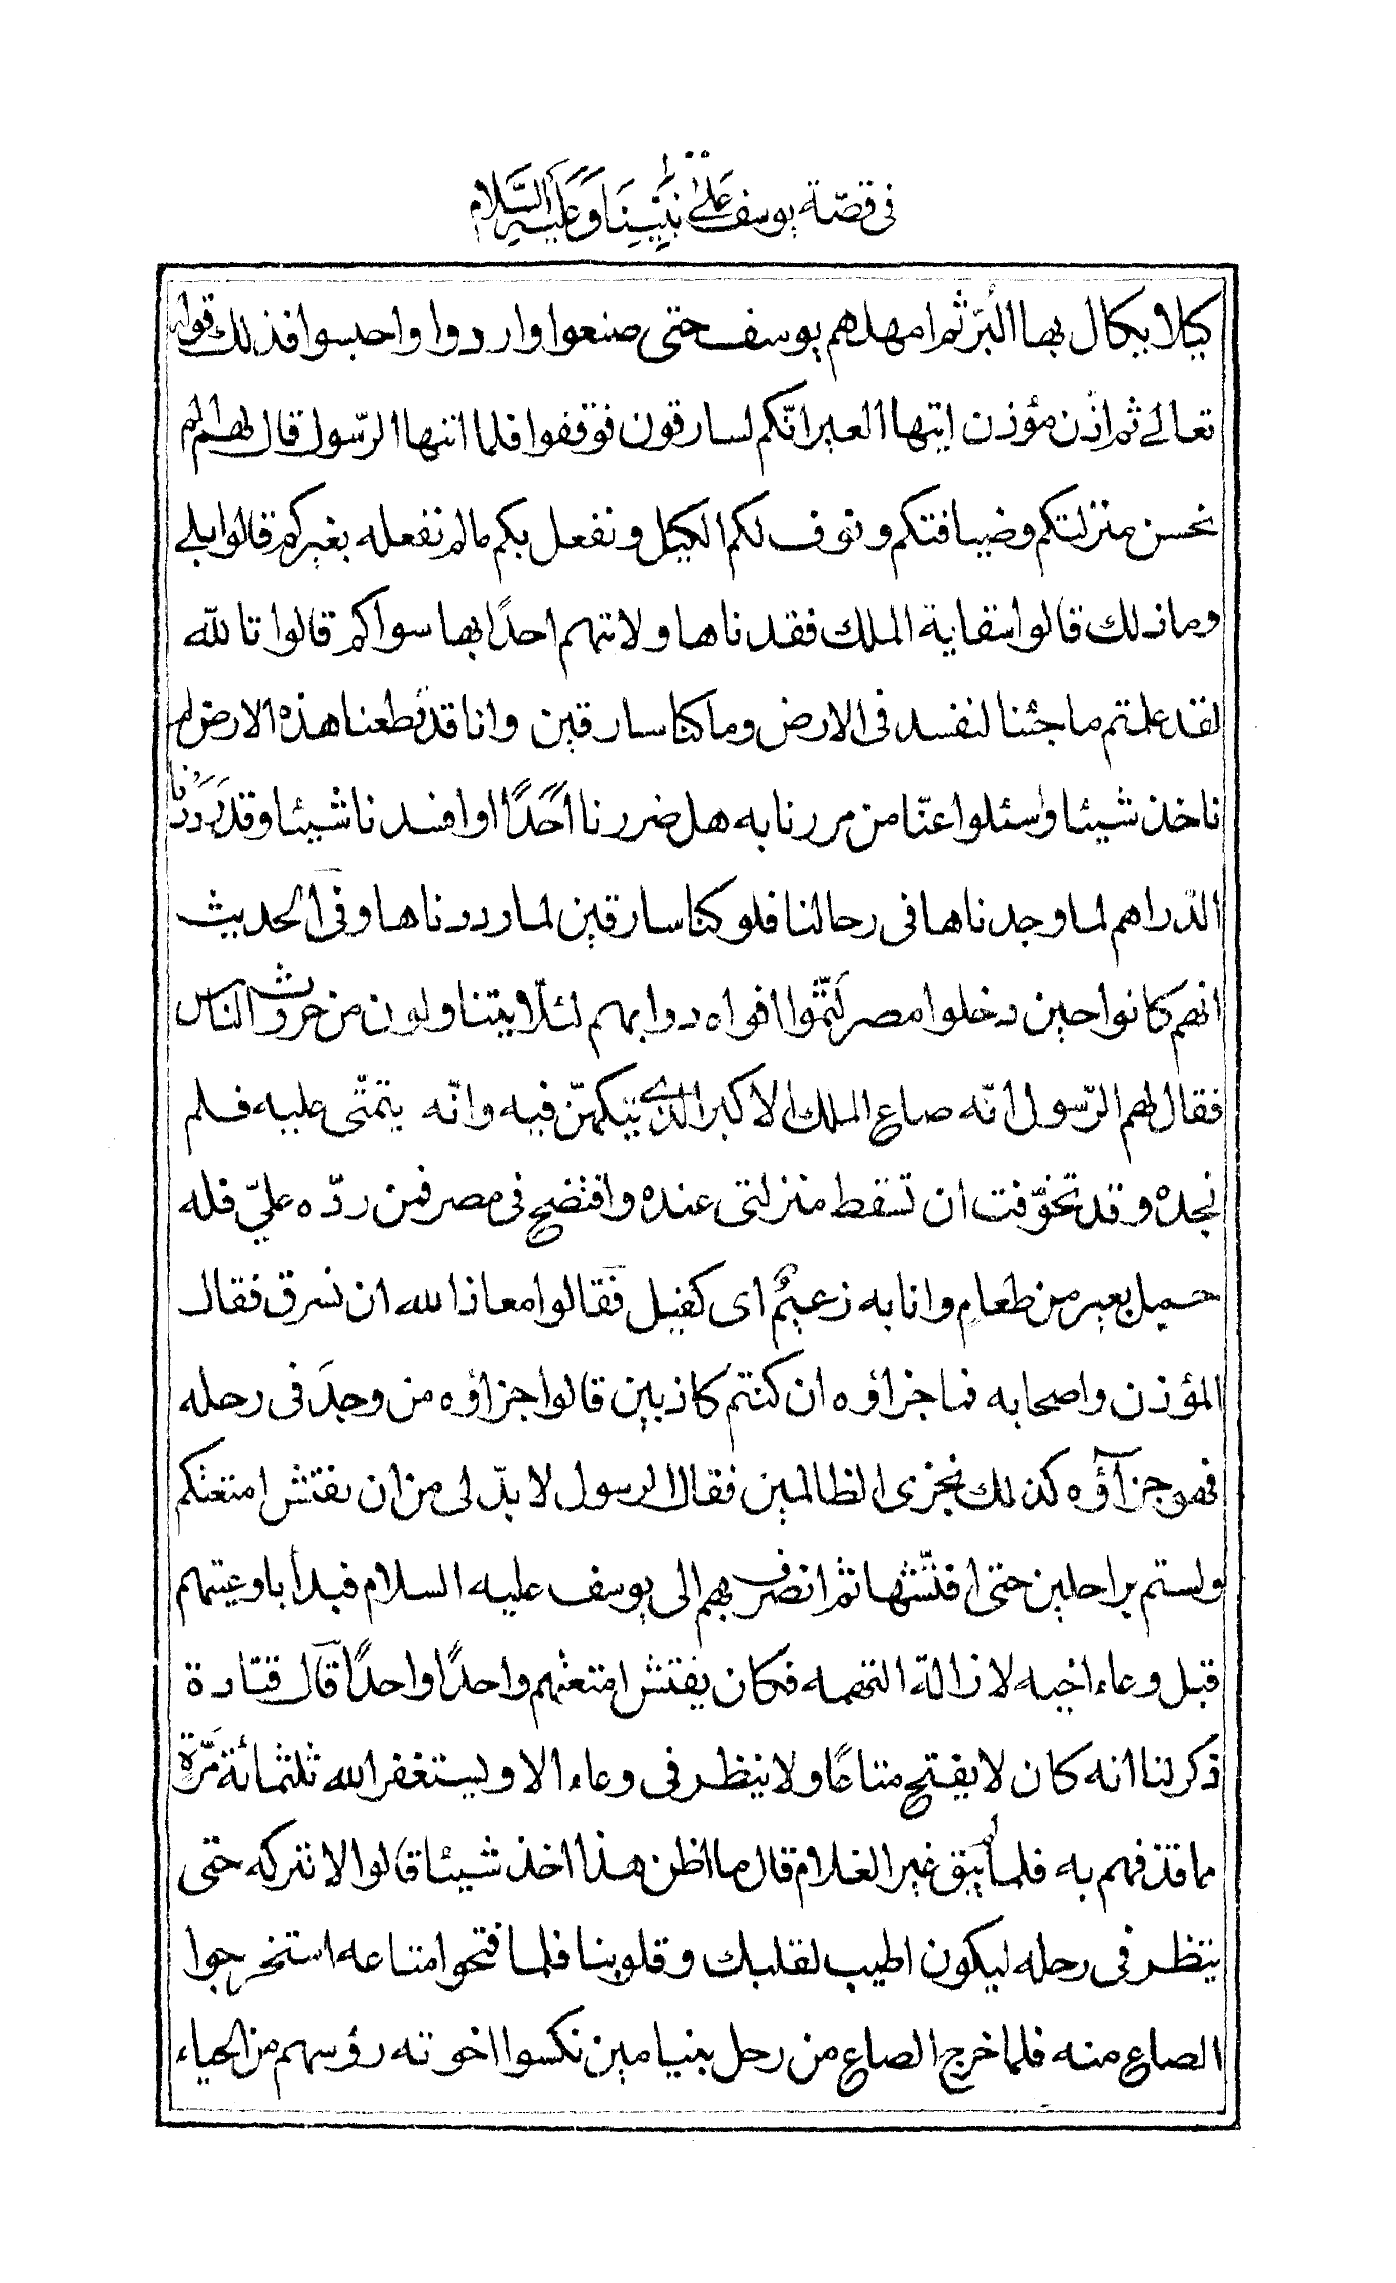 فى قصّة يوسف عَلىٰ نَبِيِّنَا وَعَليْهِ السَّلام
كيلا يكال بها البُرّ ثم امهلهم يوسف حتى صنعوا واردوا واحبسوا فذلك قوله
تعالے ثم اذّن مؤذن ايتها العير انّكم لسارقون فوقفوا فلما اتتها الرّسول قال لهم الم
نحسن منزلتكم وضيافتكم ونوف لكم الكيل ونفعل بكم مالم نفعله بغيركم قالوا بلے
وما ذلك قالوا سقاية الملك فقدناها ولا نتهم احدًا بها سواكم قالوا تالله
لقد علمتم ما جئنا لنفسد فى الارض وما كنا سارقين وانا قد قطعنا هذه الارض لم
ناخذ شيئا واسئلوا عنّا من مررنا به هل ضررنا اَحَدًا او افسدنا شيئا وقد رَدَدْنا
الدّراهم لما وجدناها فى رحالنا فلو كنا سارقين لما رددناها وفى الحديث
انهم كانوا حين دخلوا مصر لَثَّموا افواه دوابهم لئلّا يتناولون من حروث الناس
فقال لهم الرّسول انّه صاع الملك الاكبر الذى يتكهّن فيه وانّه يتمنّى عليه فلم
نجده وقد تخوّفت ان تسقط منزلتى عنده وافتضح فى مصر فمن ردّه علىّ فله
حمل بعير من طعامٍ وانا به زعيمٌ اى كفيل فقالوا معاذ الله ان نسرق فقال
المؤذن واصحابه فما جزاؤه ان كنتم كاذبين قالوا جزاؤه من وجدَ فى رحله
فهو جزآؤه كذلك نجزى الظالمين فقال الرسول لا بدّ لى من ان نفتش امتعتكم
ولستم براحلين حتى افتّشها ثم انصرف بهم الى يوسف عليه السلام فبدأ باوعيتهم
قبل وعاء اخيه لازالة التهمه فكان يفتش امتعتهم واحدًا واحدًا قال قتادة
ذكر لنا انه كان لا يفتح متاعًا ولا ينظر فى وعاء الا ويستغفر الله ثلثمائة مَرّة
مما قذفهم به فلما لم يبق غير الغلام قال ما اظن هذا اخذ شيئا قالوا لا نتركه حتى
ينظر فى رحله ليكون اطيب لقلبك وقلوبنا فلما فتحوا متاعه استخرجوا
الصاع منه فلما خرج الصاع من رحل بنيامين نكسوا اخوته رؤسهم من الحياء